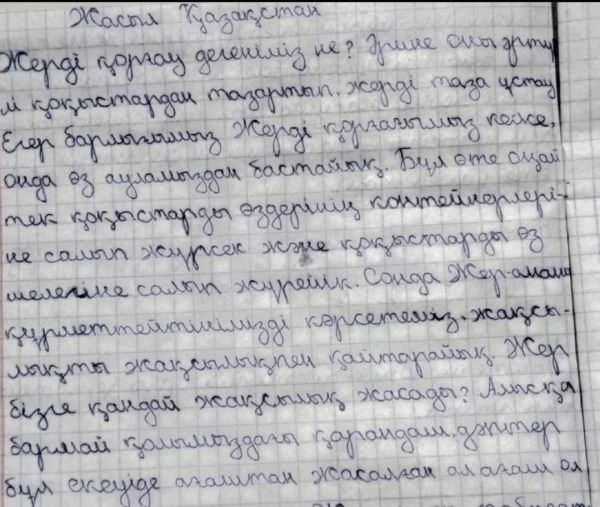 Жасыл Қазақстан
Жерді қорғау дегеніміз не? Әрине оны әртү
лі қоқыстардан тазартып, жерді таза ұстау
Егер барлығымыз Жерді қорғағымыз келсе,
онда өз ауламыздан бастайық. Бұл өте оңай
тек қоқыстарды өздерінің контейнерлері-
не салып жүрсек және қоқыстарды өз
шелегіне салып жүрейік. Сонда Жер-анаға
құрметтейтінімізді көрсетеміз. жақсы-
лықты жақсылықпен қайтарайық. Жер
бізге қандай жақсылық жасады? Алысқа
бармай қолымыздағы қарандаш, дәптер
бұл екеуіде ағаштан жасалған ал ағаш ол